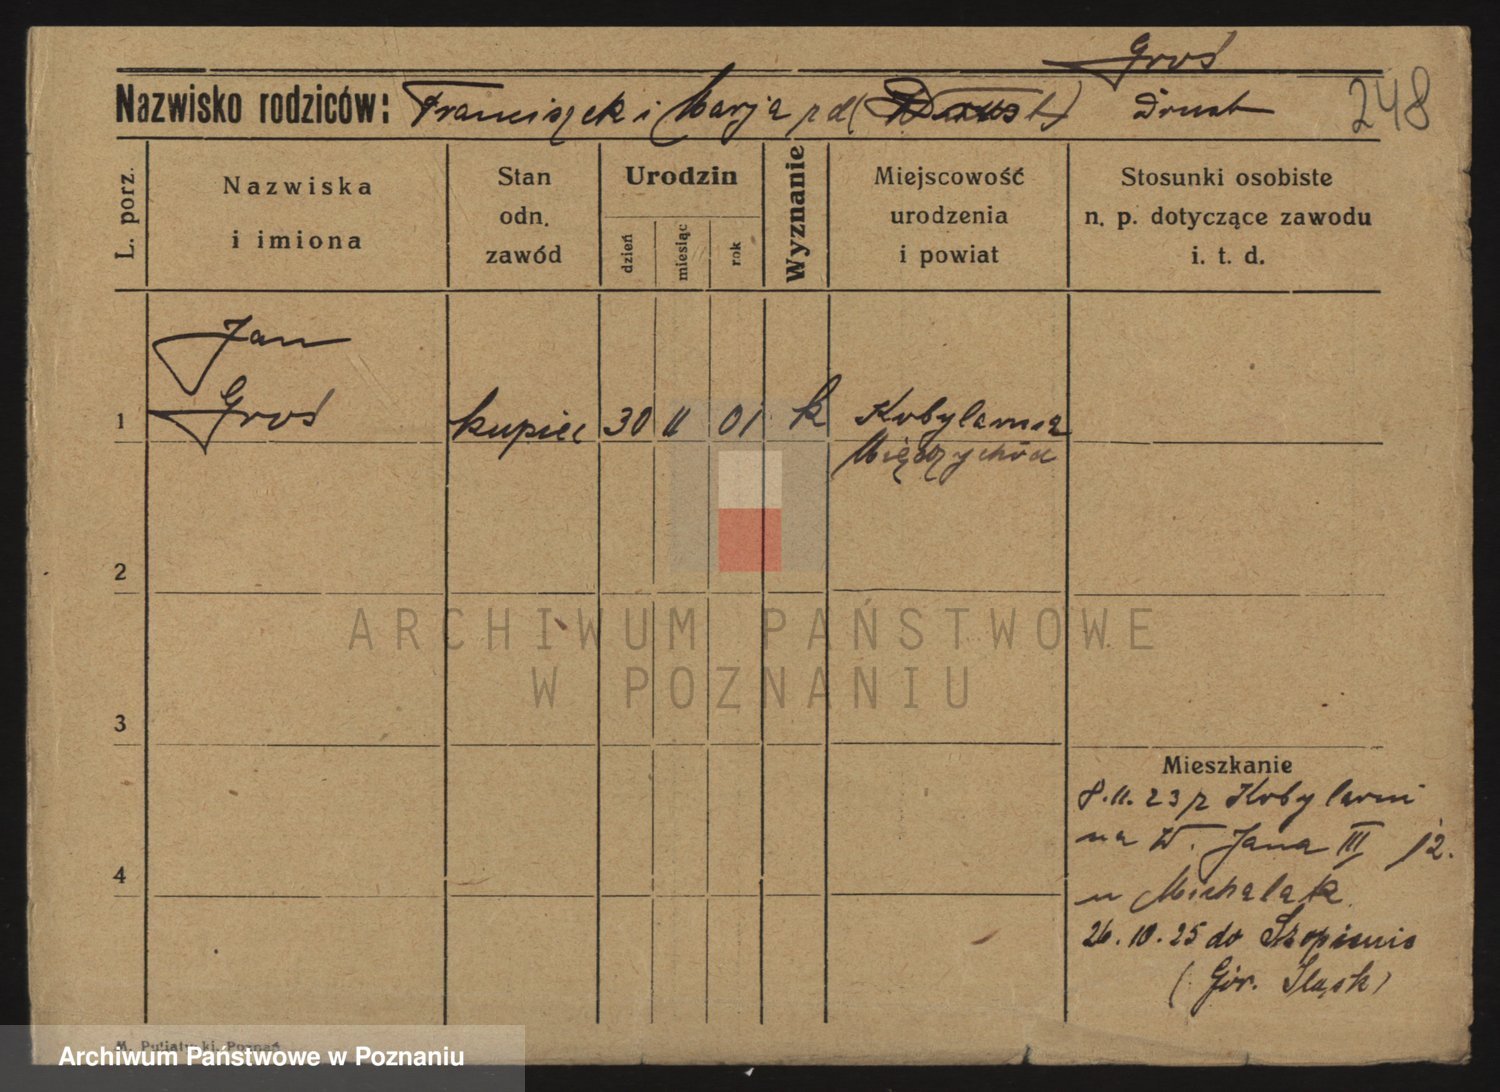 Groś
Nazwisko rodziców: Franciszek i Marja z d( ) Drust 248
L. porz.
Nazwiska
i imiona
Stan
odn.
zawód
Urodzin
dzień
miesiąc
rok
Wyznanie
Miejscowość
urodzenia
i powiat
Stosunki osobiste
n. p. dotyczące zawodu
i. t. d.
Jan
1 Groś kupiec 30 11 01 k Kobylarnia
Międzychód
2
ARCHIWUM PAŃSTWOWE
W POZNANIU
3
Mieszkanie
8.11.23 z Kobylarni
na W. Jana III 12.
4
u Michalak
26.10.25 do Szopienic
(Gór. Śląsk)
M. Putiatycki, Poznań
Archiwum Państwowe w Poznaniu